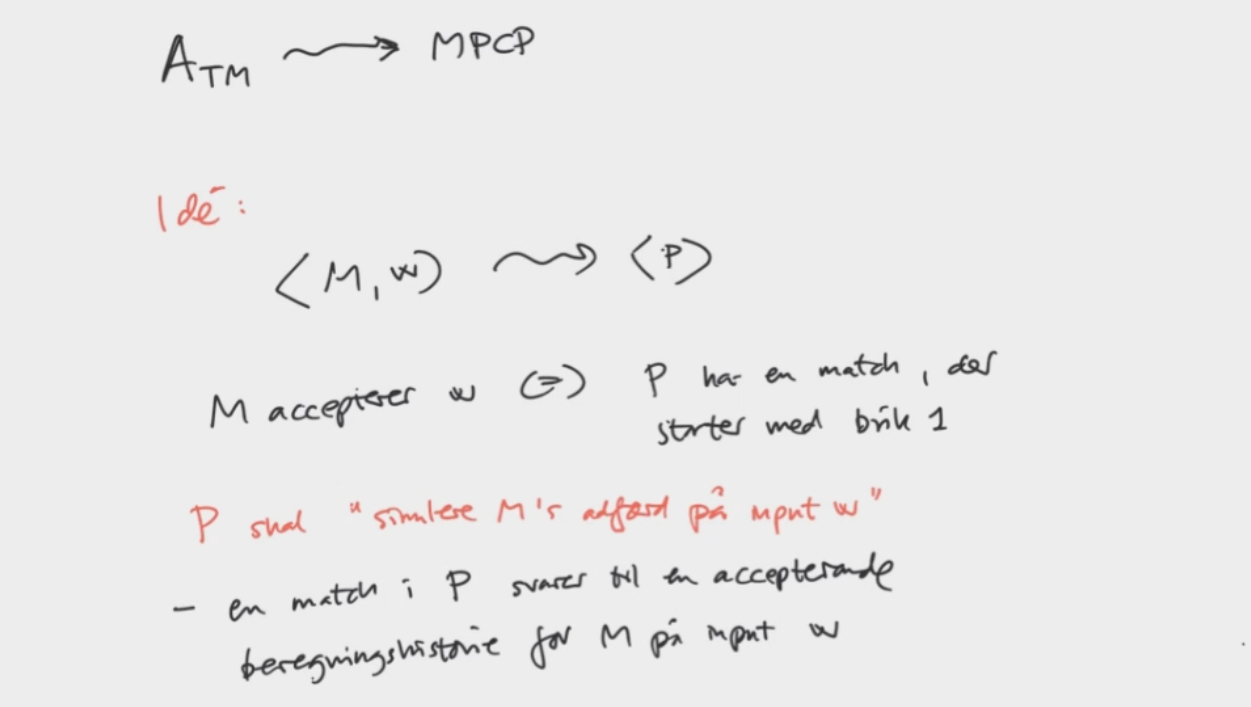 A_TM ⇝ MPCP
Idé:
⟨M, w⟩ ⇝ ⟨P⟩
M accepterer w ⇔ P har en match, der
starter med brik 1
P skal "simulere M's adfærd på input w"
- en match i P svarer til en accepterende
beregningshistorie for M på input w